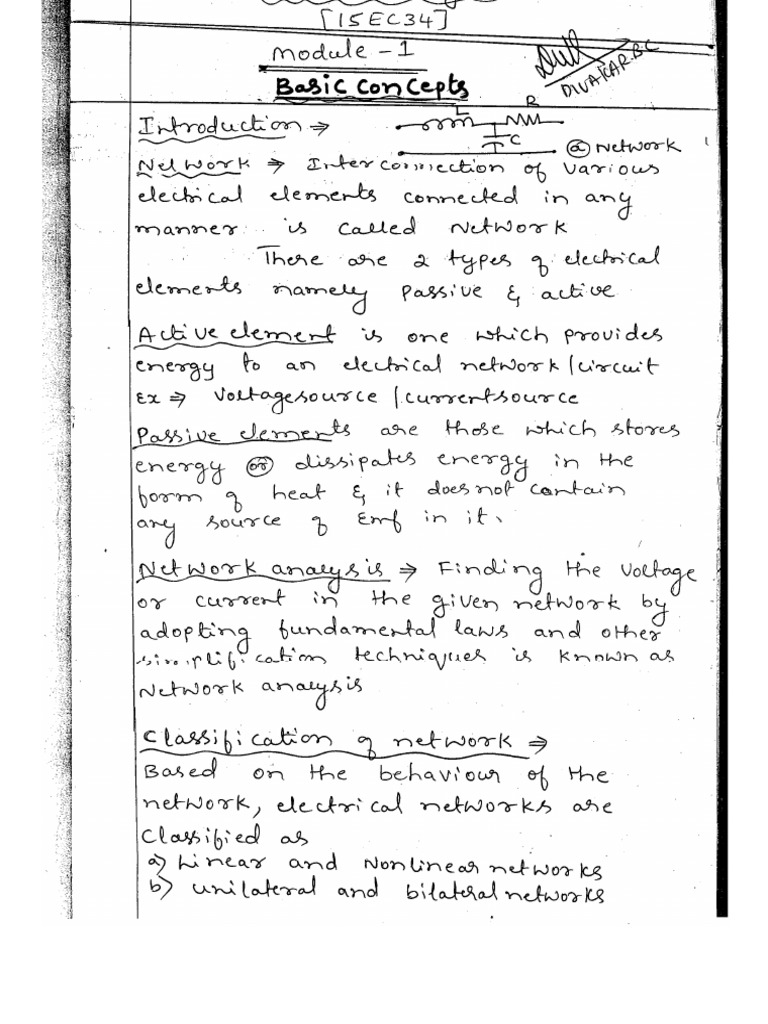 [15EC34]
Module - 1
Basic Concepts
DIVAKAR.B.C
L R
Introduction ⇒
C
@ Network
Network ⇒ Interconnection of various
electrical elements connected in any
manner is called Network
There are 2 types of electrical
elements namely Passive & active
Active element is one which provides
energy to an electrical network/circuit
Ex ⇒ Voltagesource/currentsource
Passive elements are those which stores
energy or dissipates energy in the
form of heat & it does not contain
any source of Emf in it.
Network analysis ⇒ Finding the voltage
or current in the given network by
adopting fundamental laws and other
simplification techniques is known as
Network analysis
Classification of network ⇒
Based on the behaviour of the
network, electrical networks are
Classified as
a) Linear and Nonlinear networks
b) Unilateral and bilateral networks